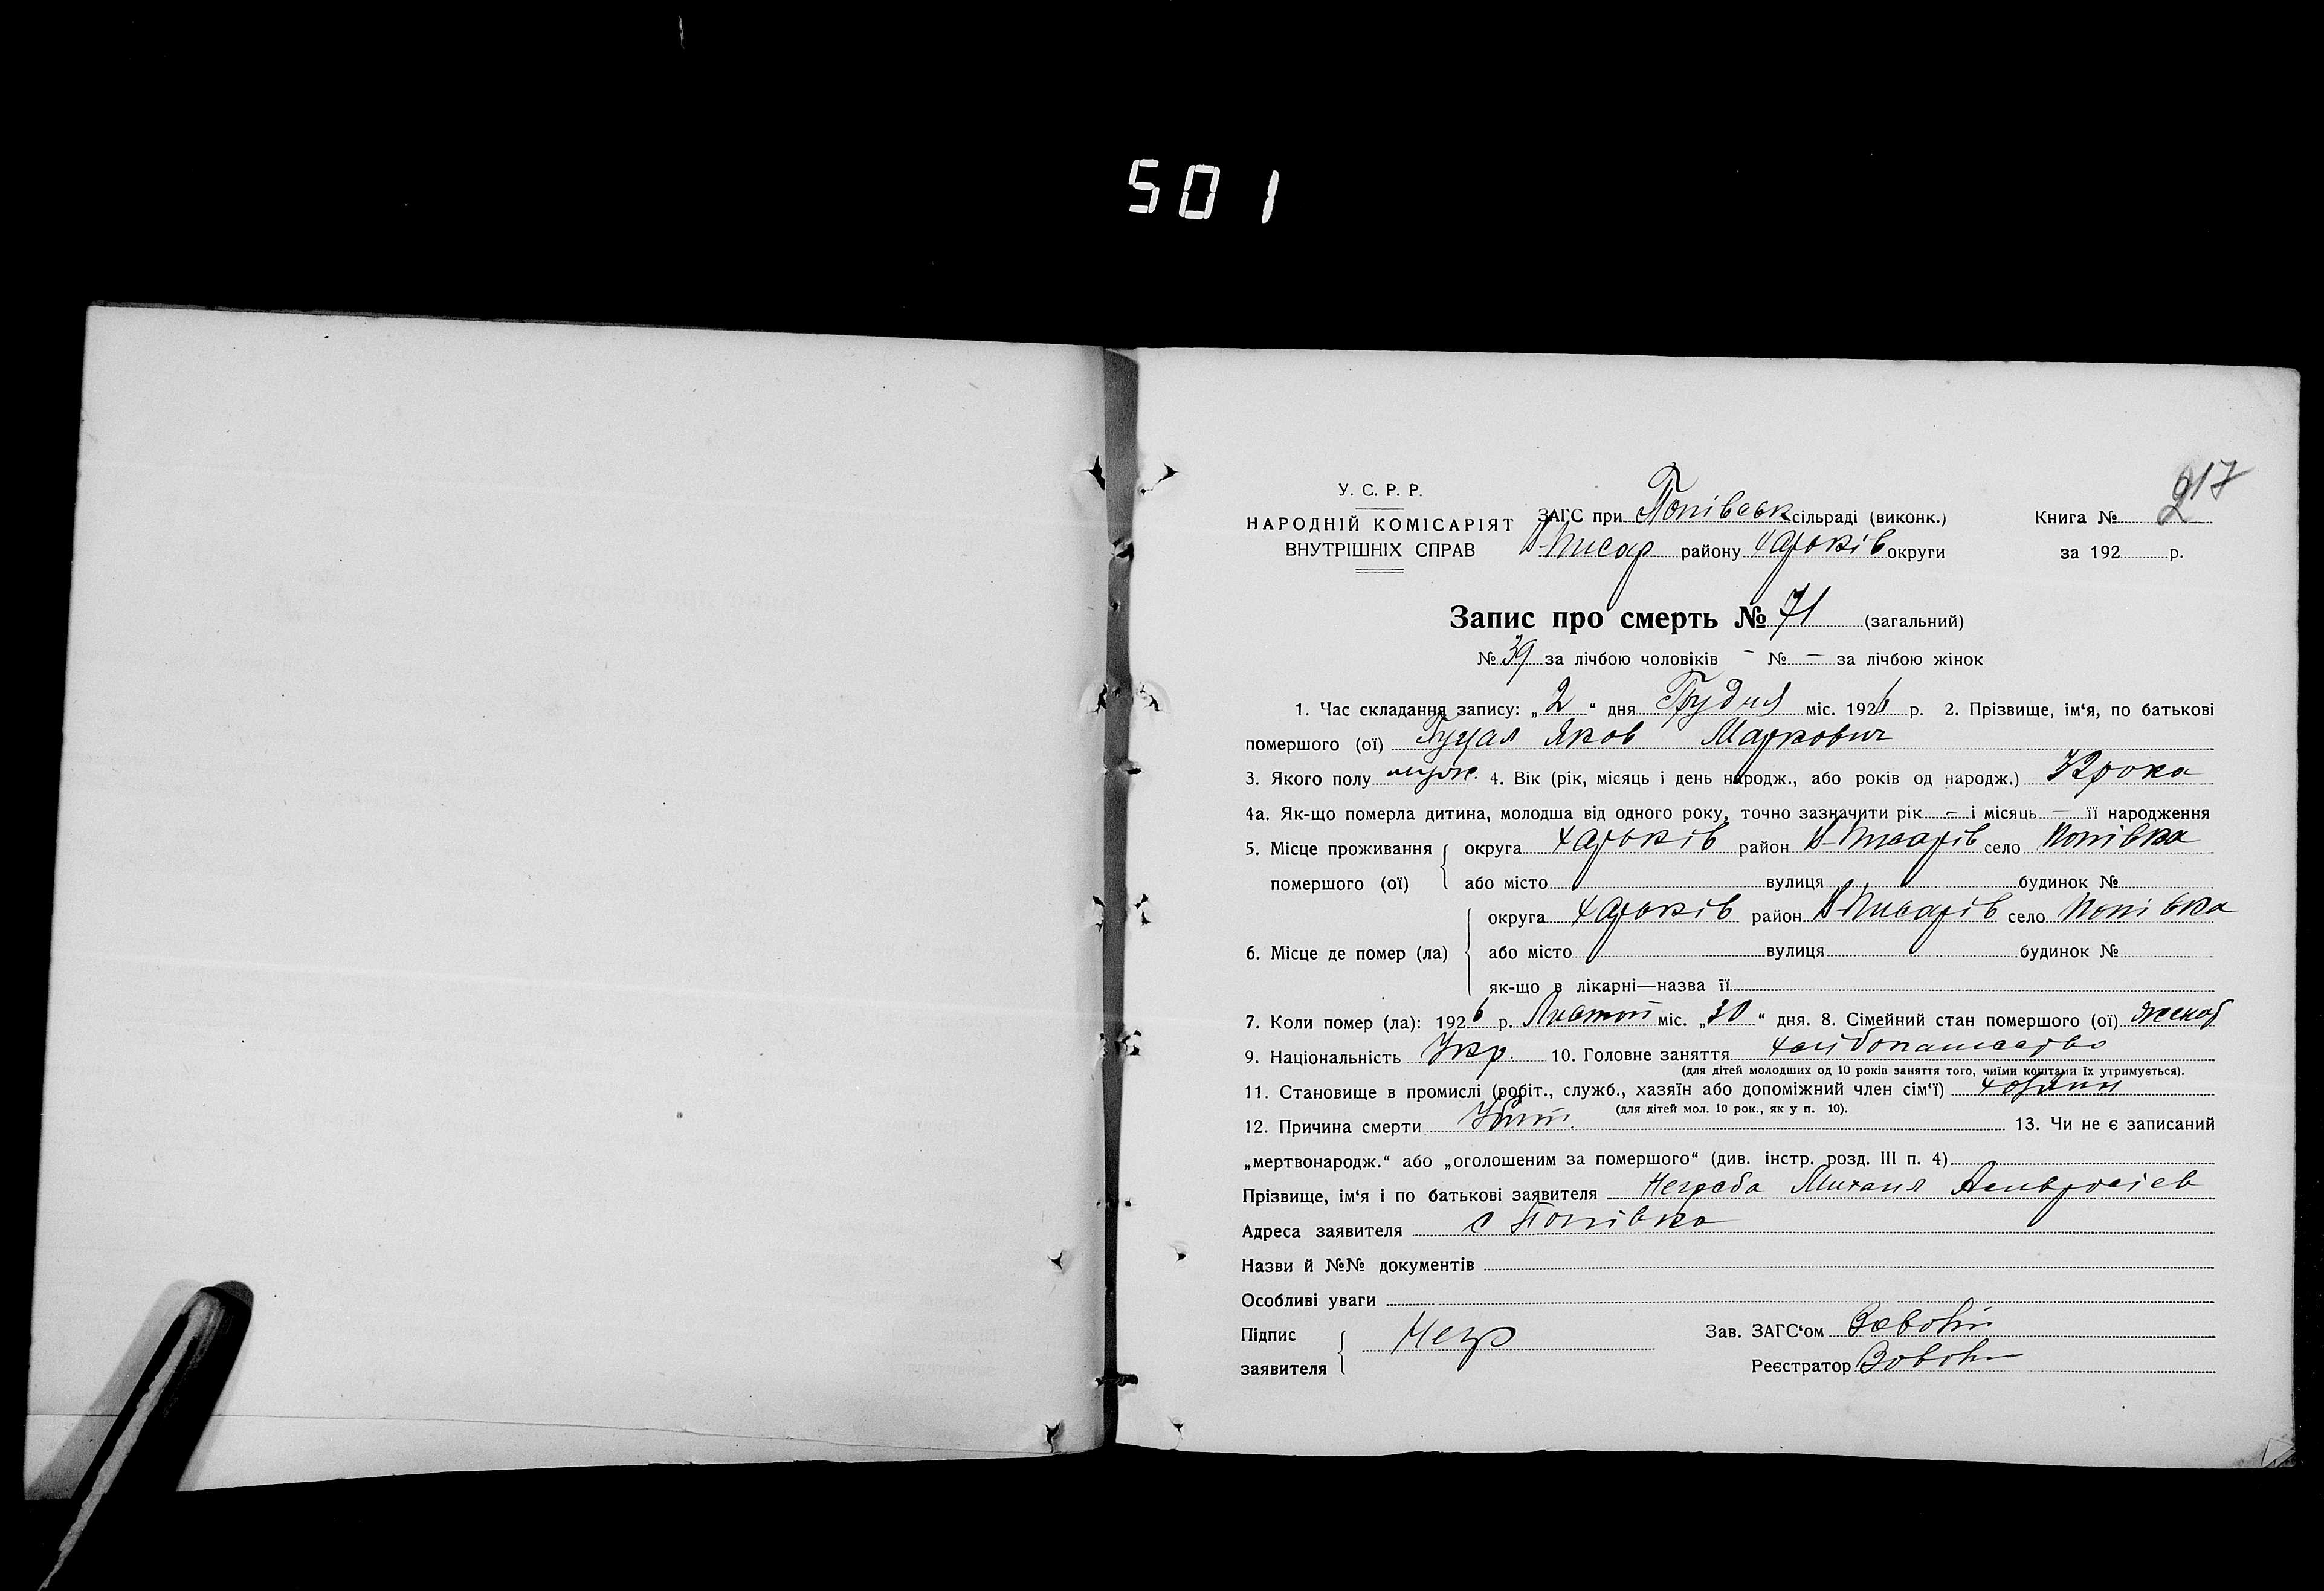 501
217
У. С. Р. Р.
НАРОДНІЙ КОМІСАРІЯТ
ВНУТРІШНІХ СПРАВ
ЗАГС при Попівськ сільраді (виконк.)
Писар району Харьків округи
Книга № 2
за 192 р.
Запис про смерть № 71 (загальний)
№ 39 за лічбою чоловіків – № – за лічбою жінок
1. Час складання запису: „2“ дня Грудня міс. 1926 р. 2. Прізвище, ім‘я, по батькові
помершого (ої) Гуцал Яков Маркович
3. Якого полу муж. 4. Вік (рік, місяць і день народж., або років од народж.) 32 рока
4а. Як-що померла дитина, молодша від одного року, точно зазначити рік – і місяць – її народження
5. Місце проживання помершого (ої) округа Харьків район В-Писарів село Попівка
або місто вулиця будинок №
6. Місце де помер (ла) округа Харьків район В-Писарів село Попівка
або місто вулиця будинок №
як-що в лікарні—назва її
7. Коли помер (ла): 1926 р. Листоп міс. „30“ дня. 8. Сімейний стан помершого (ої) женат
9. Національність Укр. 10. Головне заняття
(для дітей молодших од 10 років заняття того, чиїми коштами їх утримується).
11. Становище в промислі (робіт., служб., хазяїн або допоміжний член сім‘ї) хозяин
(для дітей мол. 10 рок., як у п. 10).
12. Причина смерти Убит. 13. Чи не є записаний
„мертвонародж.“ або „оголошеним за помершого“ (див. інстр. розд. III п. 4)
Прізвище, ім‘я і по батькові заявителя Михаил
Адреса заявителя с Попівка
Назви й №№ документів
Особливі уваги
Підпис
заявителя
Зав. ЗАГС‘ом
Реєстратор